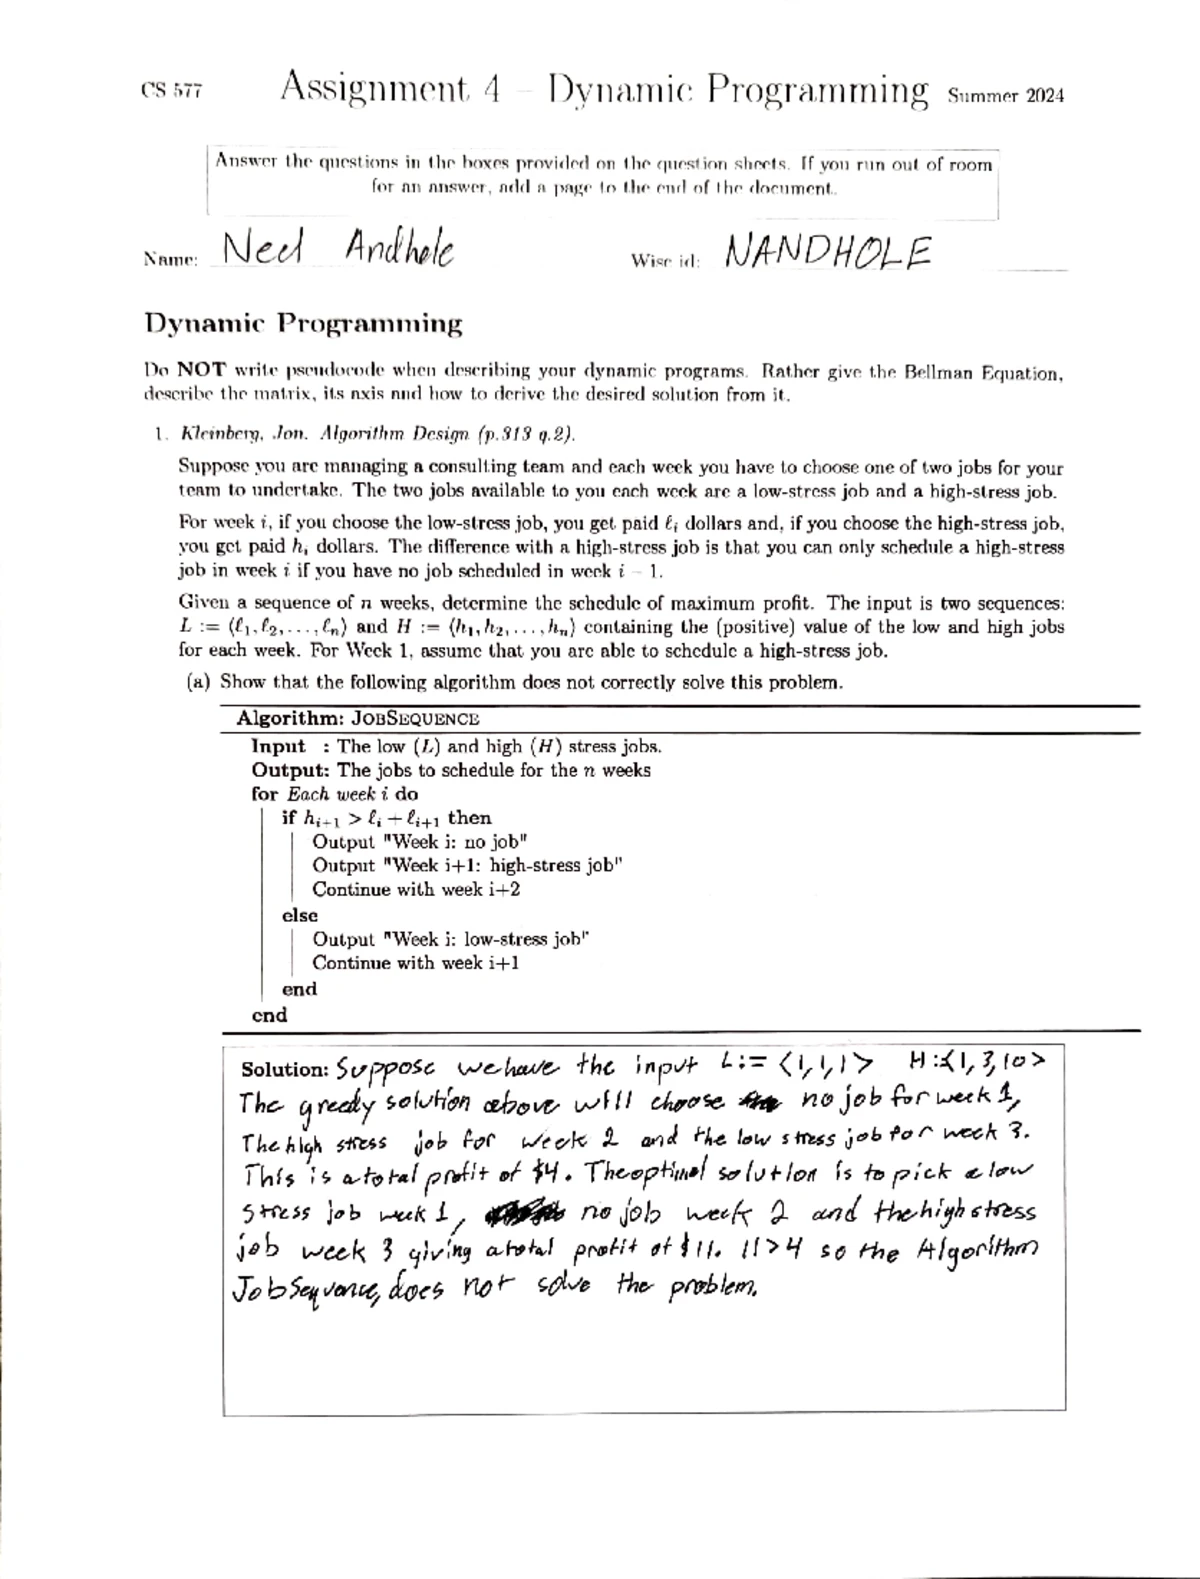 CS 577 Assignment 4 – Dynamic Programming Summer 2024
Answer the questions in the boxes provided on the question sheets. If you run out of room
for an answer, add a page to the end of the document.
Name: Ned Andhole Wisc id: NANDHOLE
Dynamic Programming
Do NOT write pseudocode when describing your dynamic programs. Rather give the Bellman Equation,
describe the matrix, its axis and how to derive the desired solution from it.
1. Kleinberg, Jon. Algorithm Design (p.313 q.2).
Suppose you are managing a consulting team and each week you have to choose one of two jobs for your
team to undertake. The two jobs available to you each week are a low-stress job and a high-stress job.
For week i, if you choose the low-stress job, you get paid ℓᵢ dollars and, if you choose the high-stress job,
you get paid hᵢ dollars. The difference with a high-stress job is that you can only schedule a high-stress
job in week i if you have no job scheduled in week i − 1.
Given a sequence of n weeks, determine the schedule of maximum profit. The input is two sequences:
L := ⟨ℓ₁, ℓ₂, . . . , ℓₙ⟩ and H := ⟨h₁, h₂, . . . , hₙ⟩ containing the (positive) value of the low and high jobs
for each week. For Week 1, assume that you are able to schedule a high-stress job.
(a) Show that the following algorithm does not correctly solve this problem.
Algorithm: JOBSEQUENCE
Input : The low (L) and high (H) stress jobs.
Output: The jobs to schedule for the n weeks
for Each week i do
if hᵢ₊₁ > ℓᵢ + ℓᵢ₊₁ then
Output "Week i: no job"
Output "Week i+1: high-stress job"
Continue with week i+2
else
Output "Week i: low-stress job"
Continue with week i+1
end
end
Solution: Suppose we have the input L:= ⟨1,1,1⟩ H:⟨1,3,10⟩
The greedy solution above will choose no job for week 1,
The high stress job for week 2 and the low stress job for week 3.
This is a total profit of $4. The optimal solution is to pick a low
stress job week 1, no job week 2 and the high stress
job week 3 giving a total profit of $11. 11>4 so the Algorithm
JobSequence, does not solve the problem.